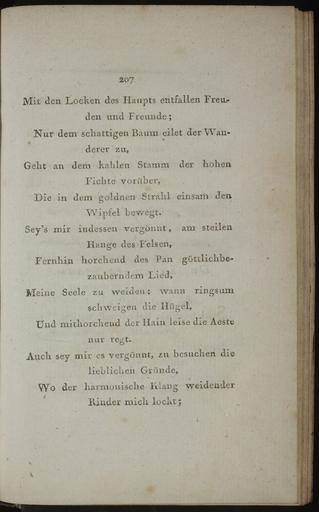 207
Mit den Locken des Haupts entfallen Freu-
den und Freunde;
Nur dem schattigen Baum eilet der Wan-
derer zu,
Geht an dem kahlen Stamm der hohen
Fichte vorüber,
Die in dem goldnen Strahl einsam den
Wipfel bewegt.
Sey's mir indessen vergönnt, am steilen
Hange des Felsen,
Fernhin horchend des Pan göttlichbe-
zauberndem Lied,
Meine Seele zu weiden: wann ringsum
schweigen die Hügel,
Und mithorchend der Hain leise die Aeste
nur regt.
Auch sey mir es vergönnt, zu besuchen die
lieblichen Gründe,
Wo der harmonische Klang weidender
Rinder mich lockt;